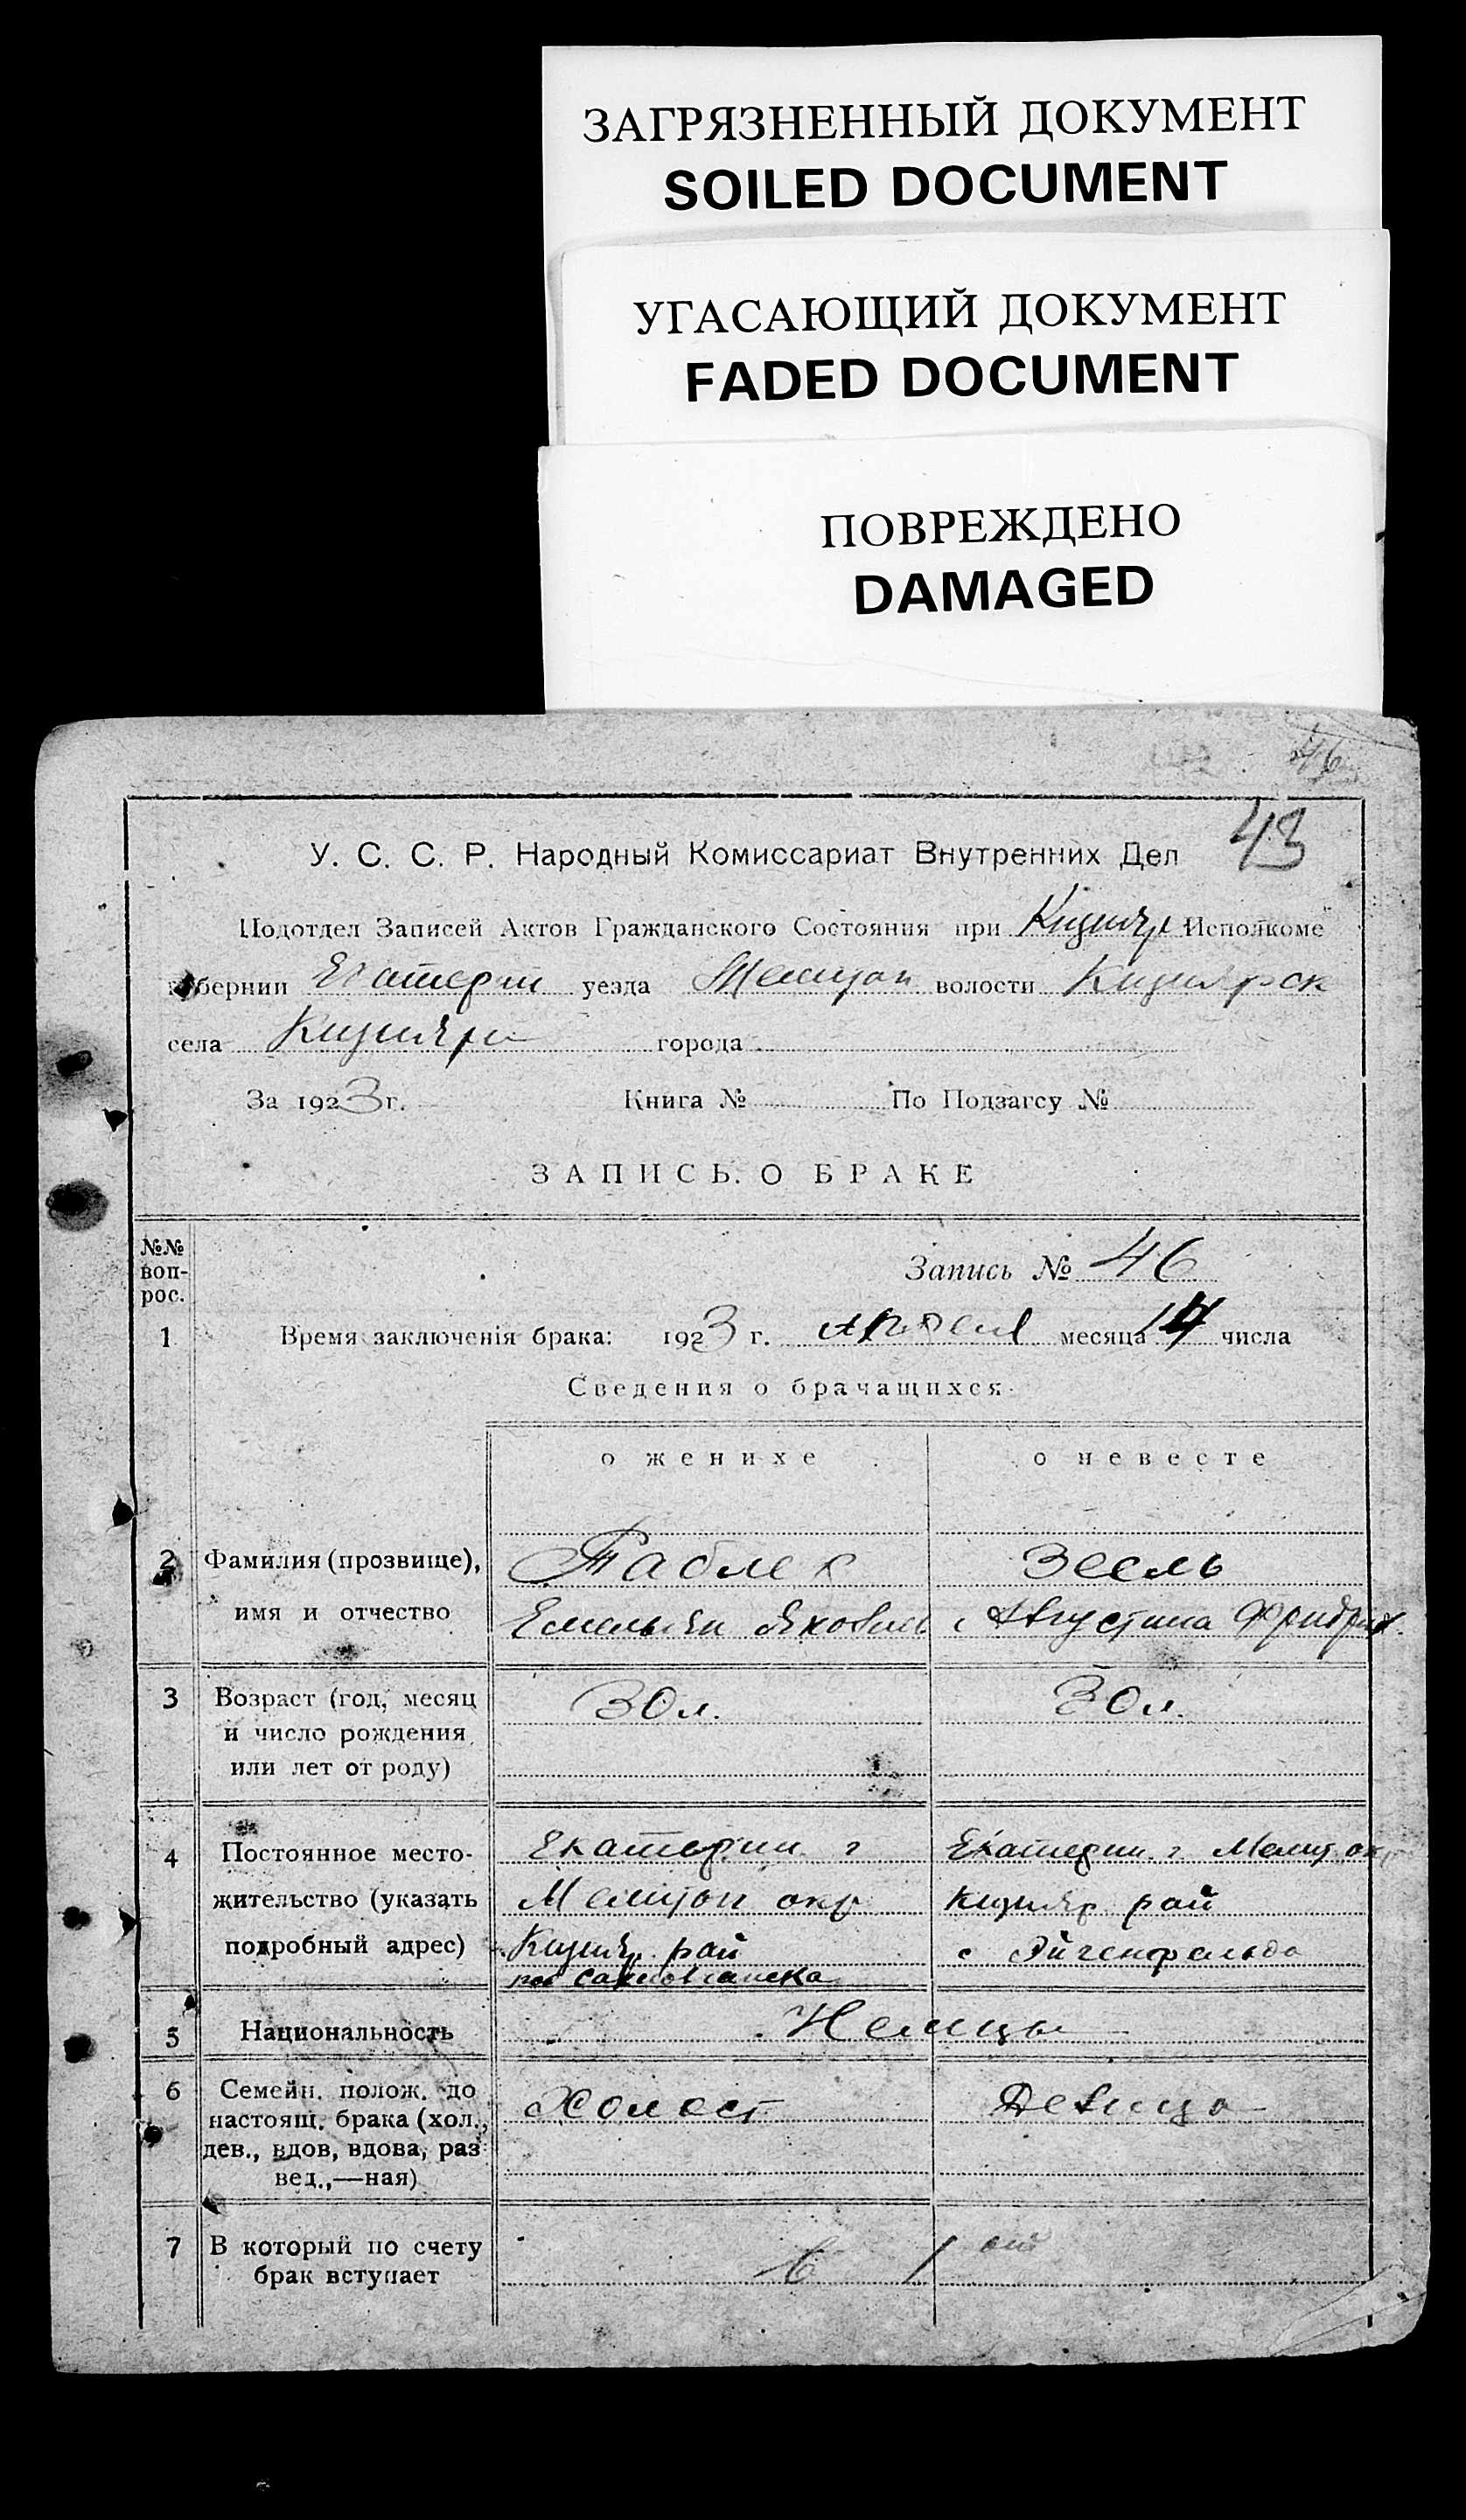 ЗАГРЯЗНЕННЫЙ ДОКУМЕНТ
SOILED DOCUMENT
УГАСАЮЩИЙ ДОКУМЕНТ
FADED DOCUMENT
ПОВРЕЖДЕНО
DAMAGED
46
43
У. С. С. Р. Народный Комиссариат Внутренних Дел
Подотдел Записей Актов Гражданского Состояния при Кизияр Исполкоме
губернии Екатерин уезда Мелитоп волости Кизиярск
села Кизияри города
За 1923 г. Книга № По Подзагсу №
ЗАПИСЬ О БРАКЕ
№№ воп-рос.
Запись № 46
1 Время заключенія брака: 1923 г. Апреля месяца 14 числа
Сведения о брачащихся
о женихе о невесте
2 Фамилия (прозвище), Таблек Зеель
имя и отчество Емельян Яковлев Августина Фридрих.
3 Возраст (год, месяц 30 л. 30 л.
и число рождения
или лет от роду)
4 Постоянное место- Екатерин г Екатерин. г Мелит ок
жительство (указать Мелитоп окр Кизияр рай
подробный адрес) Кизияр рай с Эйгенфельда
5 Национальность Немцы
6 Семейн. полож. до Холост Девица
настоящ. брака (хол.,
дев., вдов, вдова, раз
вед.,—ная)
7 В который по счету в 1 ый
брак вступает